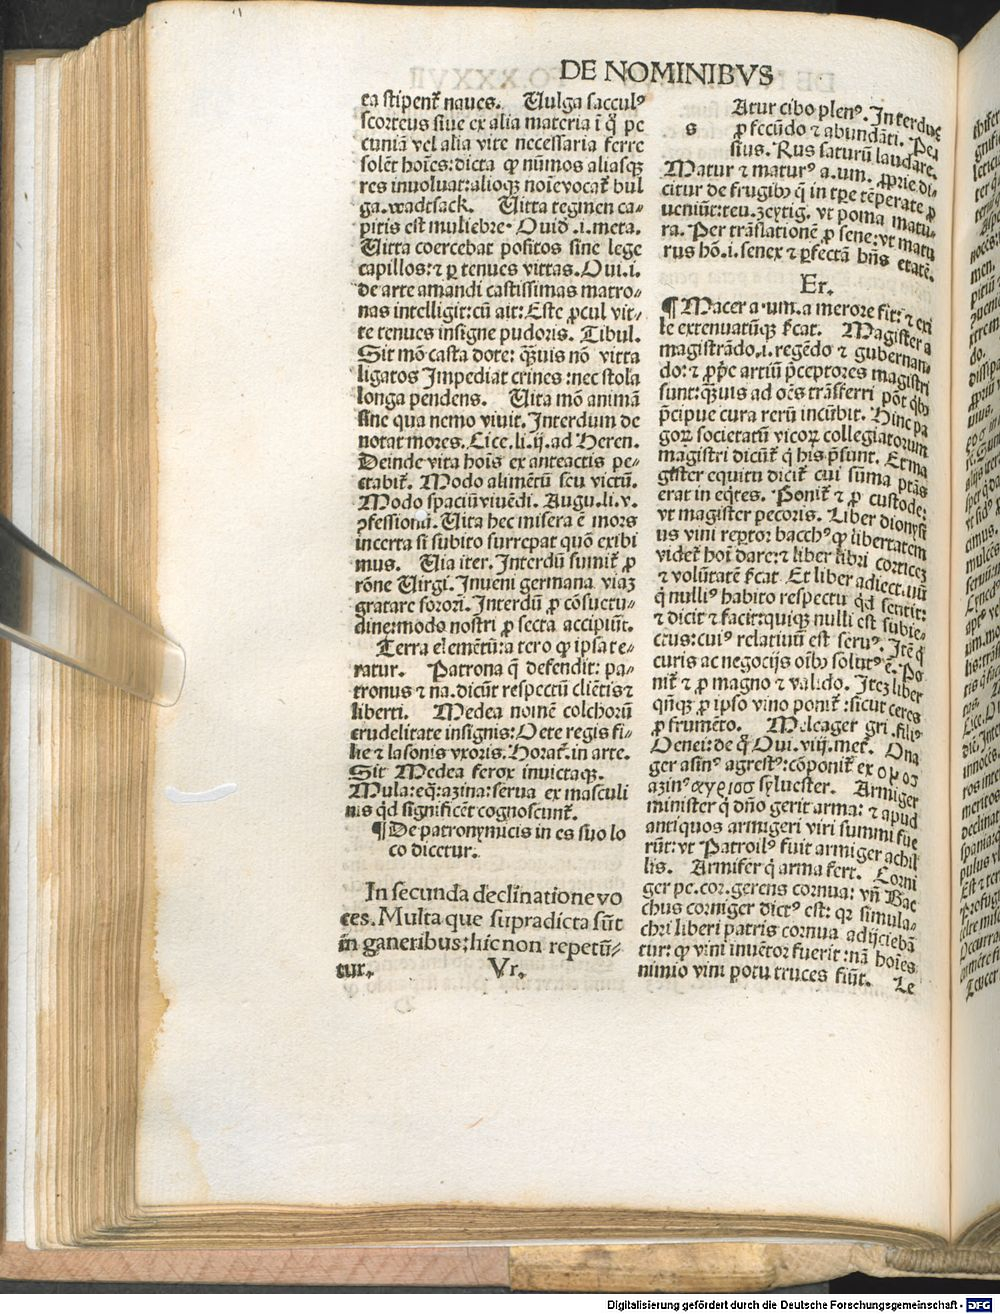 DE NOMINIBVS
ea stipent᷑ naues. Uulga saccul⁹
scorteus siue ex alia materia ī q̄ pe
cuniā vel alia vite necessaria ferre
solēt hoīes: dicta ꝙ nūmos aliasqꝫ
res inuoluat: alioqꝫ noīe vocat᷑ bul
ga. wadtsack. Uitta tegmen ca⸗
pitis est muliebre. Ouid .i. meta.
Uitta coercebat positos sine lege
capillos: ⁊ ꝑ tenues vittas. Oui. i.
de arte amandi castissimas matro⸗
nas intelligit: cū ait: Este ꝓcul vit⸗
te tenues insigne pudoris. Tibul.
Sit mō casta dote: qͣ̄uis nō vitta
ligatos Impediat crines: nec stola
longa pendens. Uita mō animā
sine qua nemo viuit. Interdum de
notat mores. Cice. li. ij. ad Heren.
Deinde vita hoīs ex anteactis pe⸗
ctabit᷑. Modo alimētū seu victū.
Modo spaciū viuēdi. Augu. li. v.
ꝯfessionū. Uita hec misera ē mors
incerta si subito surrepat quō exibi
mus. Uia iter. Interdū sumit᷑ ꝓ
rōne Uirgi. Inueni germana viaꝫ
gratare sorori. Interdū ꝓ cōsuetu⸗
dine: modo nostri ꝓ secta accipiūt.
Terra elemētū: a tero ꝙ ipsa te⸗
ratur. Patrona q̄ defendit: pa⸗
tronus ⁊ na. dicūt respectū cliētis ⁊
liberti. Medea nomē colchorū
crudelitate insignis: Oete regis fi⸗
lie ⁊ Iasonis vxoris. Horat᷑. in arte.
Sit Medea ferox inuictaqꝫ.
Mula: eq̄: azina: serua ex masculi
nis qd̄ significēt cognoscunt᷑.
¶ De patronymicis in es suo lo
co dicetur.
In secunda declinatione vo
ces. Multa que supradicta sūt
in generibus: hic non repetū⸗
tur. Vr.
s Atur cibo plen⁹. Interdū
ꝓ fecūdo ⁊ abundāti. Per
sius. Rus saturū laudare.
Matur ⁊ matur⁹ a. um. ꝓprie di⸗
citur de frugibꝫ q̄ in tp̄e tēperate ꝓ
ueniūt: teu. zeytig. vt poma matu⸗
ra. Per trāslationē ꝓ sene: vt matu
rus hō. i. senex ⁊ ꝑfectā hn̄s etatē.
Er.
¶ Macer a. um. a merore fit: ⁊ exi
le extenuatūqꝫ
magistrādo. i. regēdo ⁊ gubernan⸗
do: ⁊ artiū p̄ceptores magistri
sunt: qͣ̄uis ad oēs trāsferri pōt
p̄cipue cura rerū incūbit. Hinc pa
goꝝ societatū vicoꝝ collegiatorum
magistri dicūt᷑ q̇ his p̄sunt. Et ma
gister equitū dicit᷑ cui sūma ptās
erat in eq̄tes. Ponit᷑ ⁊ ꝓ custode:
vt magister pecoris. Liber dionysi
us vini reꝑtor bacch⁹ ꝙ libertatem
videt᷑ hoī dare: ⁊ liber libri corticeꝫ
⁊ volūtatē Et liber adiect. vū
q̇ nulli⁹ habito respectu qd̄ sentit:
⁊ dicit ⁊ facit: quiqꝫ nulli est subie⸗
ctus: cui⁹ relatiuū est seru⁹. Itē
curis ac negocijs oībꝫ solut⁹ ē. Po
nit᷑ ⁊ ꝓ magno ⁊ valido. Iteꝫ liber
qn̄qꝫ ꝓ ipso vino ponit᷑: sicut ceres
ꝓ frumēto. Meleager gri. fili⁹
Oenei: de q̊ Oui. viij. met᷑. Ona
ger asin⁹ agrest⁹: cōponit᷑ ex ονοσ
azin⁹ αγριοσ syluester. Armiger
minister q̇ dn̄o gerit arma: ⁊ apud
antiquos armigeri viri summi fue
rūt: vt Patroil⁹ fuit armiger achil
lis. Armifer q̇ arma fert. Corni
ger pe. cor. gerens cornua: vn̄ Bac
chus corniger dict⁹ est: qꝛ simula⸗
chri liberi patris cornua adijciebā
tur: ꝙ vini inuētor fuerit: nā hoīes
nimio vini potu truces fiūt. Le
Digitalisierung gefördert durch die Deutsche Forschungsgemeinschaft - DFG